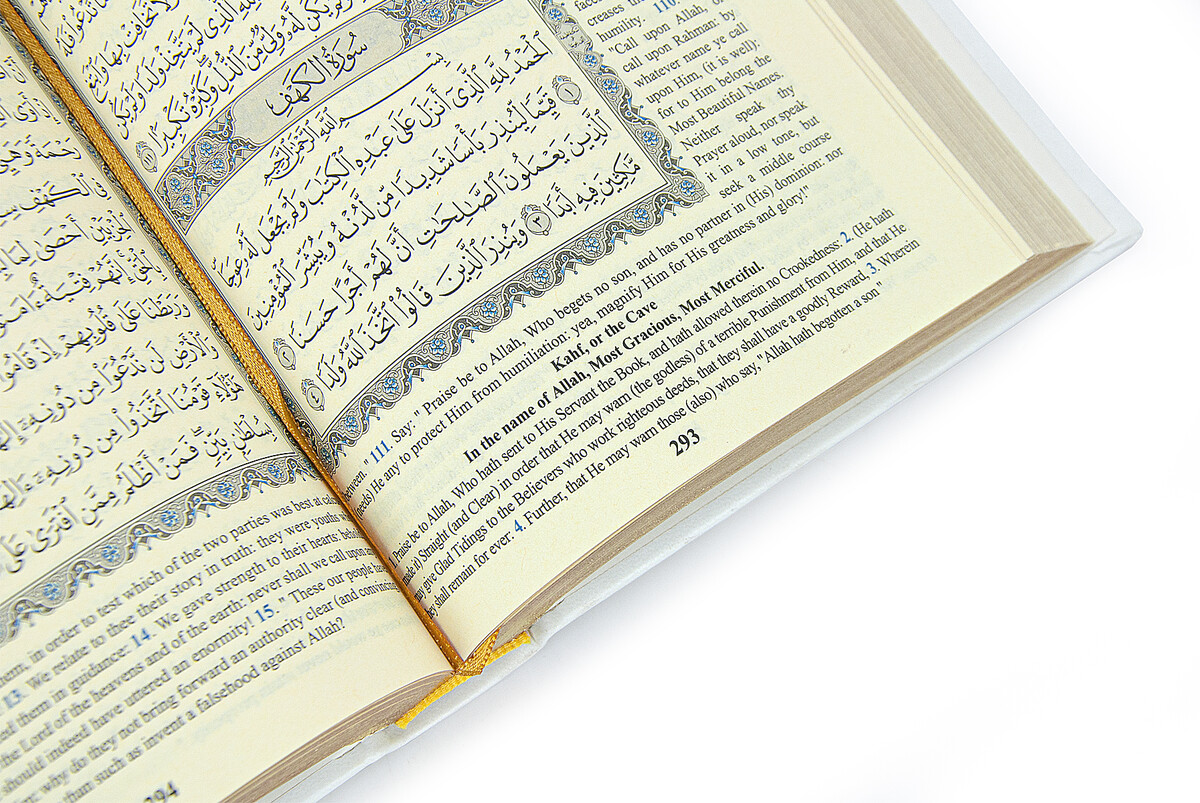 تُخَافِتْ بِهَا وَٱبْتَغِ
ٱلَّذِى لَمْ يَتَّخِذْ وَلَدًا وَلَمْ يَكُن
يَكُن لَّهُۥ وَلِىٌّ مِّنَ ٱلذُّلِّ وَكَبِّرْهُ تَكْبِيرًا ١١١
سُورَةُ الكَهْفِ
بِسْمِ ٱللَّهِ ٱلرَّحْمَٰنِ ٱلرَّحِيمِ
ٱلْحَمْدُ لِلَّهِ ٱلَّذِىٓ أَنزَلَ عَلَىٰ عَبْدِهِ ٱلْكِتَٰبَ وَلَمْ يَجْعَل لَّهُۥ عِوَجَا ۜ
١ قَيِّمًا لِّيُنذِرَ بَأْسًا شَدِيدًا مِّن لَّدُنْهُ وَيُبَشِّرَ ٱلْمُؤْمِنِينَ
ٱلَّذِينَ يَعْمَلُونَ ٱلصَّٰلِحَٰتِ أَنَّ لَهُمْ أَجْرًا حَسَنًا ٢
مَّٰكِثِينَ فِيهِ أَبَدًا ٣ وَيُنذِرَ ٱلَّذِينَ قَالُوا۟ ٱتَّخَذَ ٱللَّهُ وَلَدًا ٤
creases
humility. 110.
"Call upon Allah, or
call upon Rahman: by
whatever name ye call
upon Him, (it is well):
for to Him belong the
Most Beautiful Names.
Neither speak thy
Prayer aloud, nor speak
it in a low tone, but
seek a middle course
between." 111. Say: " Praise be to Allah, Who begets no son, and has no partner in (His) dominion: nor
(needs) He any to protect Him from humiliation: yea, magnify Him for His greatness and glory!"
Kahf, or the Cave
In the name of Allah, Most Gracious, Most Merciful.
Praise be to Allah, Who hath sent to His Servant the Book, and hath allowed therein no Crookedness: 2. (He hath
made it) Straight (and Clear) in order that He may warn (the godless) of a terrible Punishment from Him, and that He
may give Glad Tidings to the Believers who work righteous deeds, that they shall have a goodly Reward, 3. Wherein
they shall remain for ever: 4. Further, that He may warn those (also) who say, "Allah hath begotten a son"
293
رَحْمَةً وَهَيِّئْ
فِى ٱلْكَهْفِ
ٱلْحِزْبَيْنِ أَحْصَىٰ لِمَا
بِٱلْحَقِّ إِنَّهُمْ فِتْيَةٌ ءَامَنُوا۟
وَرَبَطْنَا عَلَىٰ قُلُوبِهِمْ إِذْ قَامُوا۟
وَٱلْأَرْضِ لَن نَّدْعُوَا۟ مِن دُونِهِۦٓ
هَٰٓؤُلَآءِ قَوْمُنَا ٱتَّخَذُوا۟ مِن دُونِهِۦٓ ءَالِهَةً
بِسُلْطَٰنٍۭ بَيِّنٍ فَمَنْ أَظْلَمُ مِمَّنِ ٱفْتَرَىٰ عَلَى
them, in order to test which of the two parties was best at
13. We relate to thee their story in truth: they were youths
them in guidance: 14. We gave strength to their hearts:
the Lord of the heavens and of the earth: never shall we call upon
should indeed have uttered an enormity! 15. " These our people have
why do they not bring forward an authority clear (and convincing
than such as invent a falsehood against Allah?
294